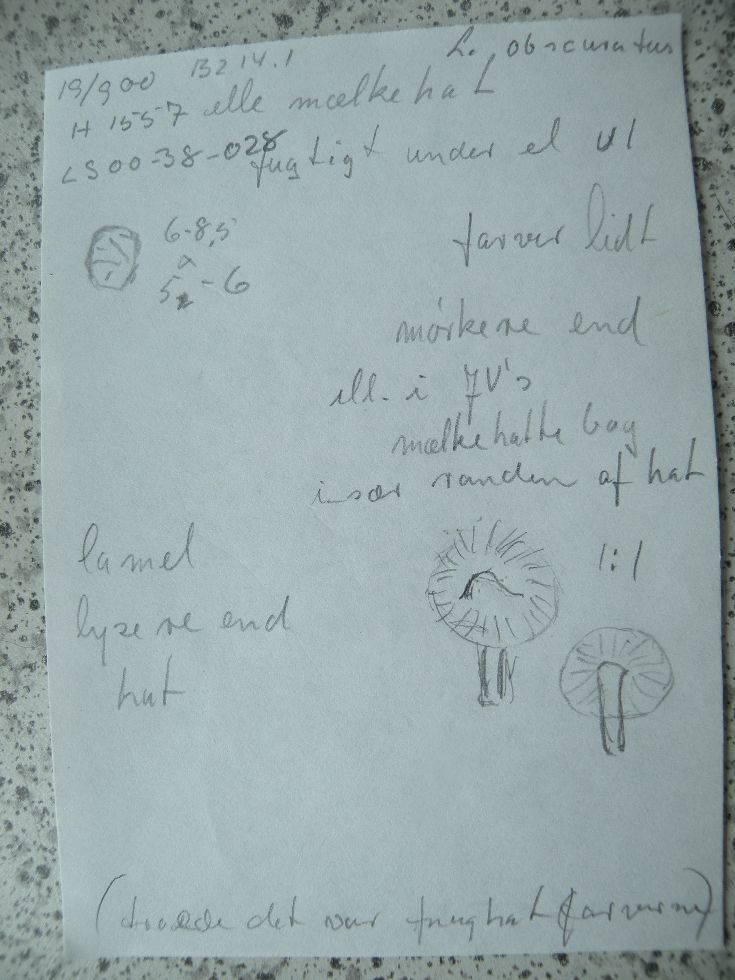 19/9 00 B214.1 L. obscuratus
H 1557 elle mælkehat
LS00-38-028 fugtigt under el
6-8,5
5 - 6
farver lidt
mörkere end
ill. i JV's
mælkehatte bog
især randen af hat
lamel
lysere end
hat
1:1
(troede det var hat farverne)